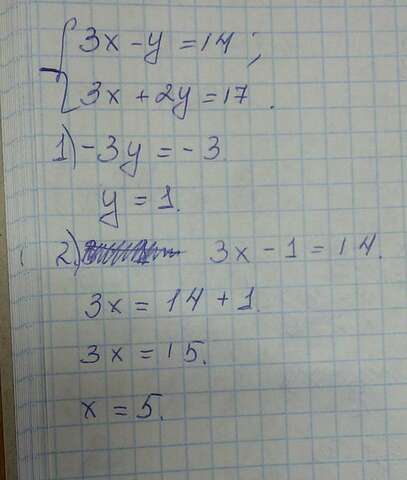 {3x - y = 14;
3x + 2y = 17.
1) -3y = -3.
y = 1.
2) 3x - 1 = 14.
3x = 14 + 1.
3x = 15.
x = 5.